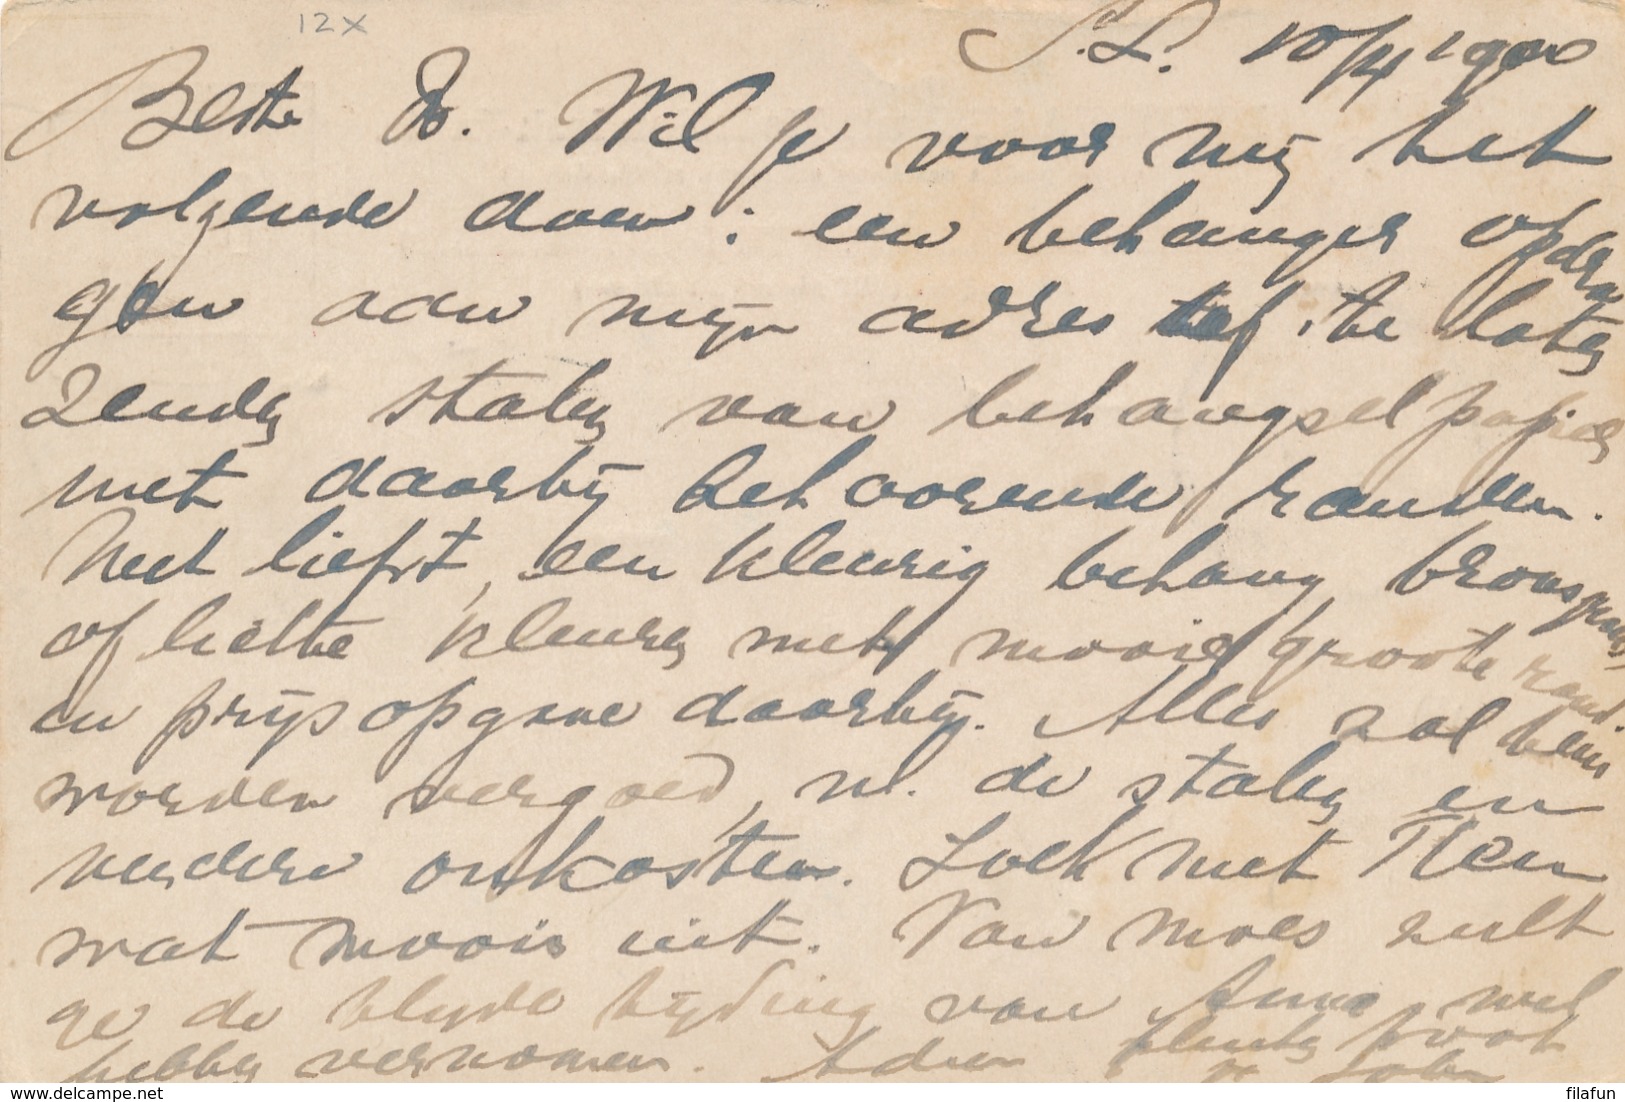 12x
S.L. 10/4 1900
Beste Wil je voor mij het
volgende doen: een behanger opdra
gen aan mijn adres te laten
zenden stalen van behangselpapier
met daarbij behoorende randen.
Het liefst, een kleurig behang brons
of lichte kleuren met mooie groote rand.
en prijsopgave daarbij. Alles zal
worden vergoed, nl. de stalen en
verdere onkosten. Zoek met
wat moois uit. Van Moes zult
ge de blijde tijding van Anna wel
hebben vernomen. Adieu poot
delcampe.net
filafun